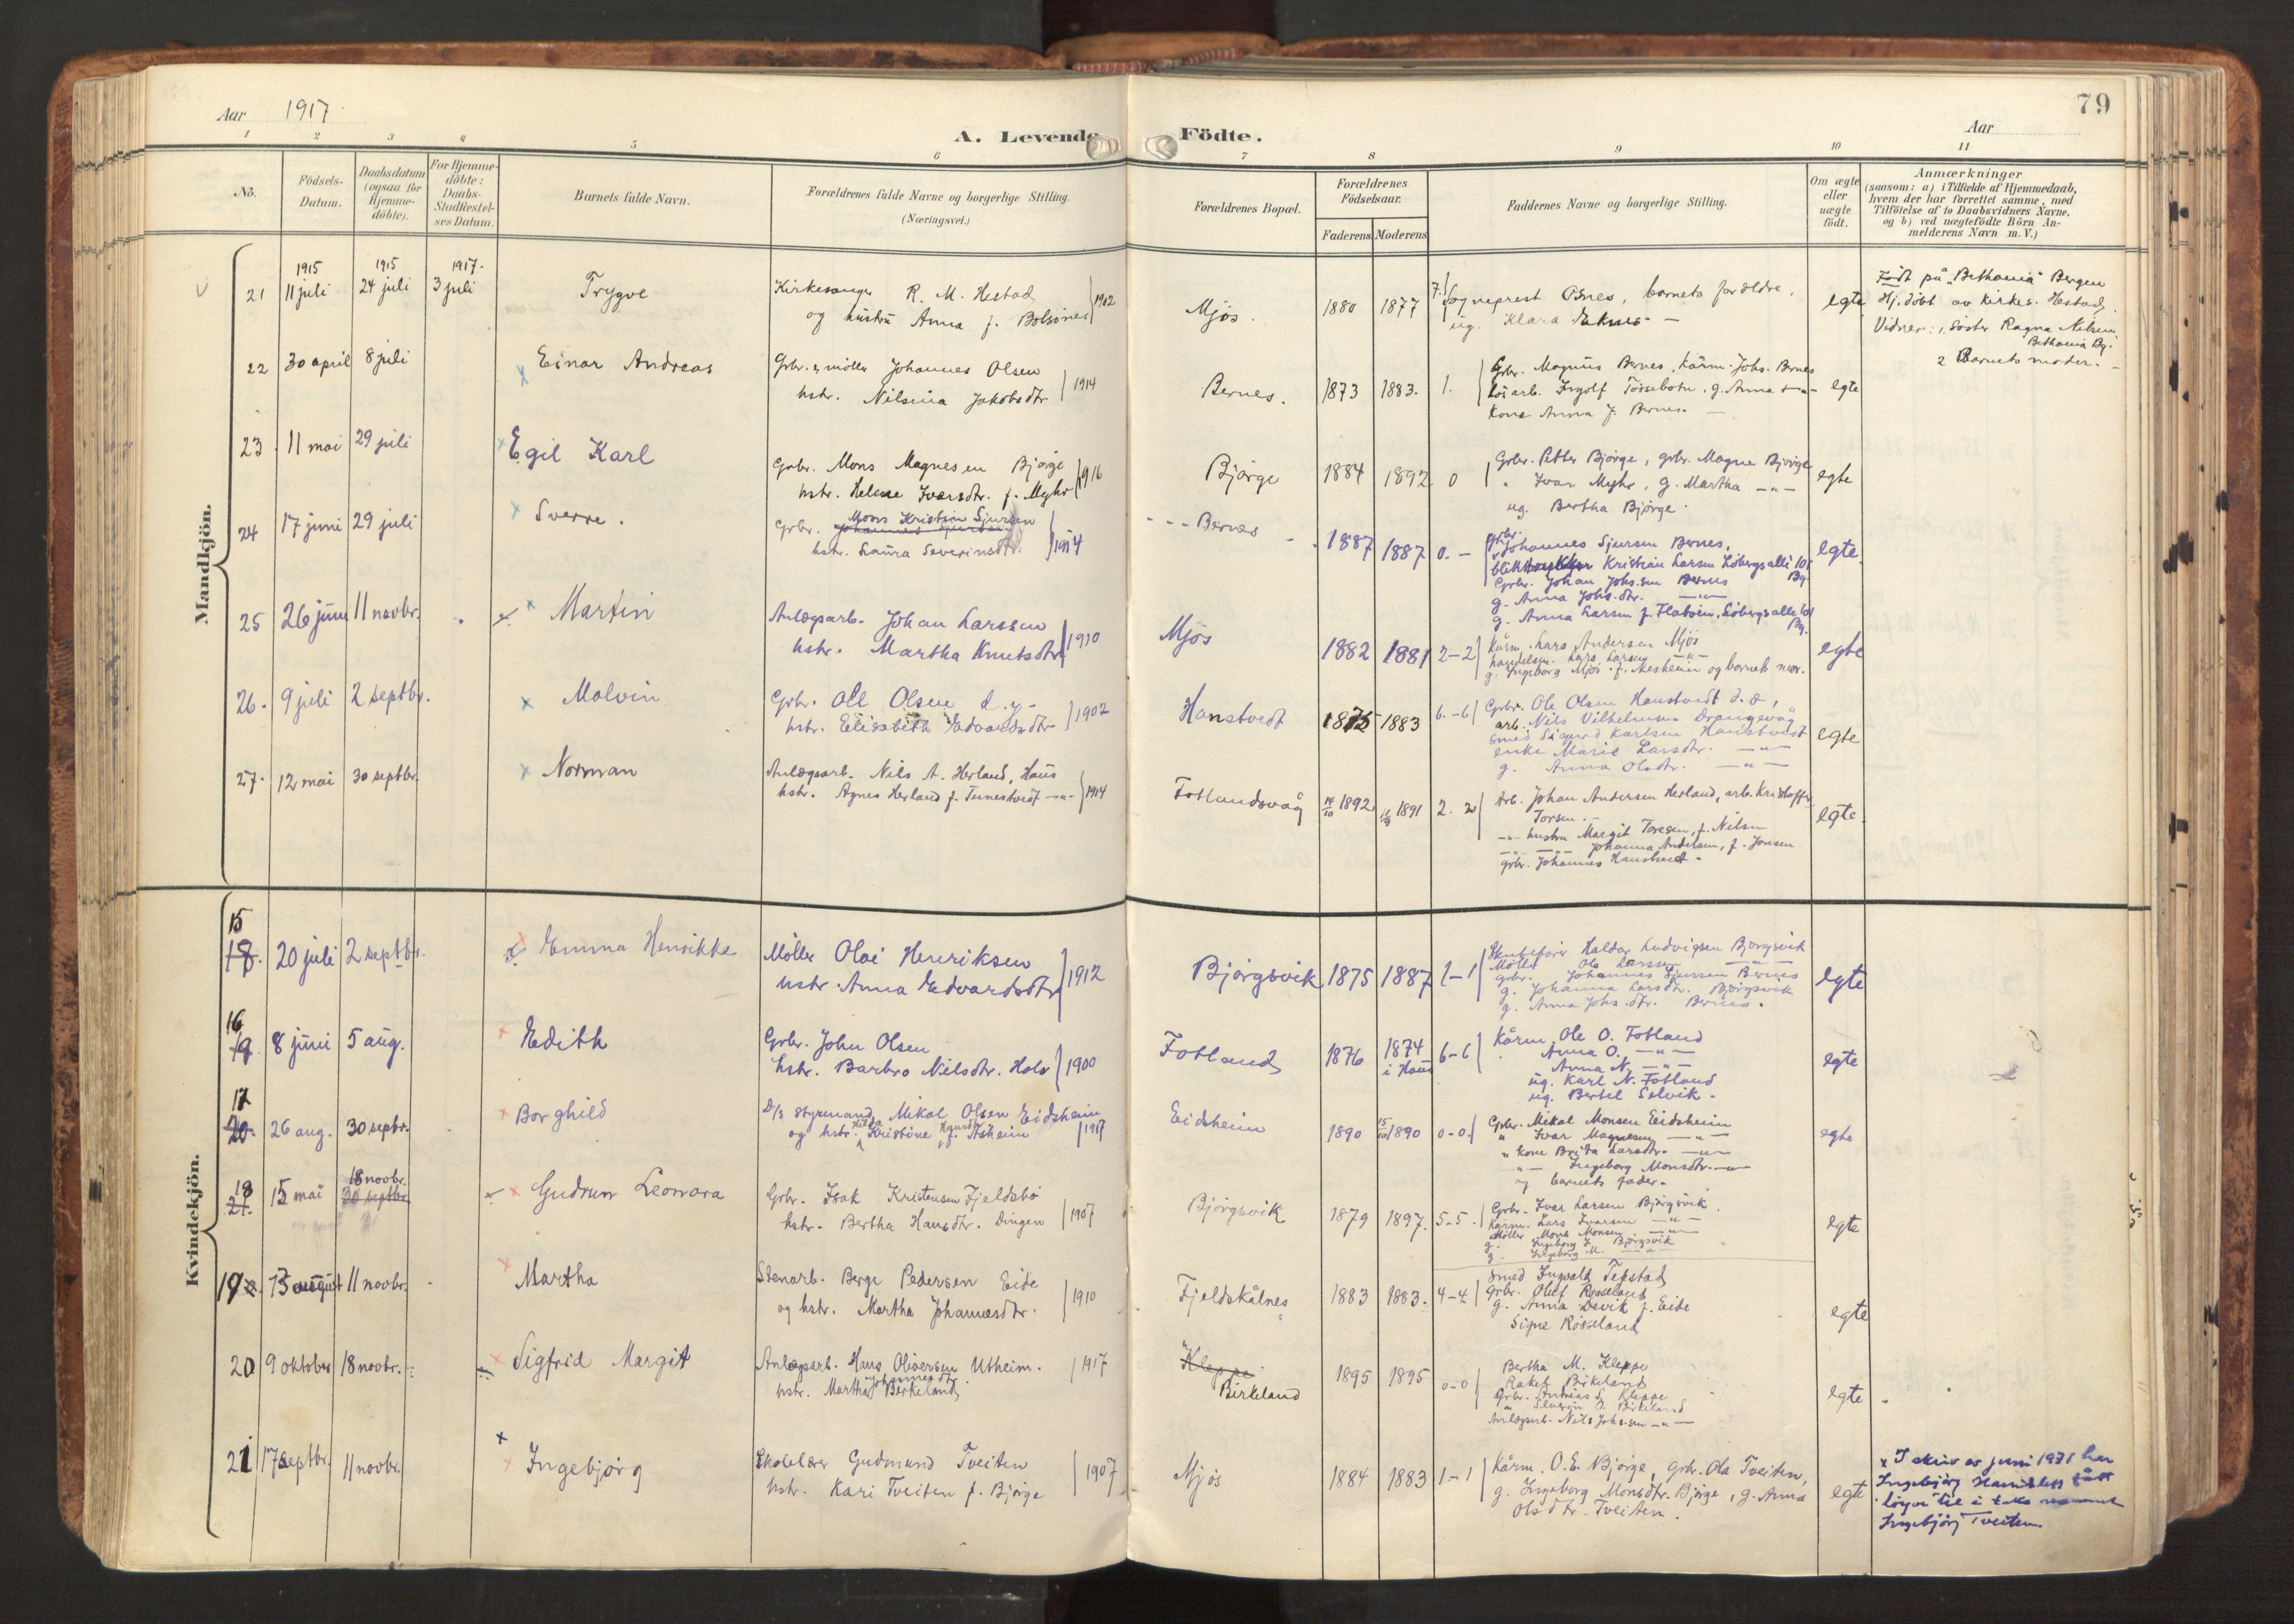 Aar 1917
A. Levende Födte.
Aar
79
1 2 3 4 5 6 7 8 9 10 11
No.
Födsels-Datum.
Daabsdatum (ogsaa for Hjemme-döbte).
For Hjemme-döbte: Daabs-Stadfæstel-ses Datum.
Barnets fulde Navn.
Forældrenes fulde Navne og borgerlige Stilling. (Næringsvei.)
Forældrenes Bopæl.
Forældrenes Födselsaar.
Faderens Moderens
Faddernes Navne og borgerlige Stilling.
Om ægte eller uægte födt.
Anmærkninger
(saasom: a) i Tilfælde af Hjemmedaab, hvem der har forrettet samme, med Tilföielse af to Daabsvidners Navne, og b) ved uægtefödte Börn An-melderens Navn m. V.)
Mandkjön.
21 1915 11 juli 1915 24 juli 1917. 3 juli Trygve
Kirkesanger R. M. Hestad
og hustru Anna f. Bolsönes 1902
Mjös. 1880 1877 7.
Sogneprest Osnes, barnets forældre,
ug. Klara
egte
Födt på "Bethania" Bergen
Hj. döbt av kirkes. Hestad.
Vidner: 1. Söster Ragna Nilsen
Bethania Bg.
2 Barnets moder.
22 30 april 8 juli Einar Andreas
Grbr. & möller Johannes Olsen
hstr. Nilsina Jakobsdtr 1914
Bernes. 1873 1883. 1.
Grbr. Magnus Bernes, kårm. Johs. Bernes
lösarb. Ingolf Tössebotn, g. Anna -"-
kone Anna f. Bernes.
egte
23 11 mai 29 juli Egil Karl
Grbr. Mons Magnesen Bjørge
hstr. Helene Ivarsdtr. f. Myhr 1916
Bjørge 1884 1892 0
Grbr. Petter Bjørge, grbr. Magne Bjørge
" Ivar Myhr, g. Martha -"-
ug. Bertha Bjørge.
egte
24 17 juni 29 juli Sverre.
Mons Kristian Sjursen
Grbr. Johannes Sjursen
hstr. Laura Severinsdtr. 1914
Bernes 1887 1887 0.-
Grbr. Johannes Sjursen Bernes,
Kristian Larsen Löbergsalle 101 Bg.
Grbr. Johan Johs.sen Bernes
g. Anna Johs.dtr. -"-
g. Anna Larsen f. Flatöen, Löbergsalle 101 Bg.
egte.
25 26 juni 11 novbr. Martin
Anlægsarb. Johan Larssen
hstr. Martha Knutsdtr. 1910
Mjös 1882 1881 2-2
Kårm. Lars Andersen Mjös
handelsm. Lars Larsen -"-
g. Ingeborg Mjös f. Nesheim og barnets mor.
egte
26. 9 juli 2 septbr. Malvin
Grbr. Ole Olsen d.y.
hstr. Elisabeth Edvardsdtr 1902
Hanstvedt 1875 1883 6.-6
Grbr. Ole Olsen Hanstvedt d.æ,
arb. Nils Vilhelmsen Drangevåg
smed Sigurd Karlsen Hanstvedt
enke Marie Larsdtr. -"-
g. Anna Olsdtr. -"-
egte
27. 12 mai 30 septbr. Norman
Anlægsarb. Nils A. Herland, Haus
hstr. Agnes Herland f. Tunestvedt -"- 1914
Fotlandsvåg 14/10 1892 1891 2.
Arb. Johan Andersen Herland, arb. Kristoffer
Torsen.
-"- hustru Margit Toresen f. Nilsen
-"- -"- Johanna Andersen, f. Jonsen
grbr. Johannes Hanstvedt.
egte.
Kvindekjön.
15 18. 20 juli 2 septbr. Emma Henrikke
Möller Olai Henriksen
hstr. Anna Edvardsdtr 1912
Bjørgsvik 1875 1887 1-1
Haldor Ludvigsen Bjørgsvik
Möller Ole Larssen -"-
grbr. Johannes Sjursen Bernes
g. Johanna Larsdtr. Bjørgsvik
g. Anna Johs.dtr. Bernes.
egte
16 19. 8 juni 5 aug. Edith
Grbr. John Olsen
hstr. Barbro Nilsdtr. Hole 1900
Fotland 1876 1874 i Haus 6-6
Kårm. Ole O. Fotland
Anna O. -"-
Anna N. -"-
ug. Karl N. Fotland
ug. Bertel Selvik.
egte
17 20. 26 aug. 30 septbr. Borghild
D/s styrmand Mikal Olsen Eidsheim
og hstr. Hilda Kristine f. Åsheim 1917
Eidsheim 1890 15/10 1890 0-0.
Grbr. Mikal Monsen Eidsheim
" Ivar Magnesen -"-
" kone Brita Larsdtr. -"-
-"- Ingeborg Monsdtr. -"-
og barnets fader.
egte
18 21. 15 mai 18 novbr. 30 septbr. Gudrun Leonora
Grbr. Isak Kristensen Fjeldsbö
hstr. Bertha Hansdtr. 1907
Bjørgsvik 1879 1897. 5-5.
Grbr. Ivar Larsen Bjørgsvik.
kårm. Lars Ivarsen -"-
Möller Mons Monsen -"-
g. Ingeborg I. Bjørgsvik
g. Ingeborg M. -"-
egte
19 13 august 11 novbr. Martha
Stenarb. Berge Pedersen Eide
og hstr. Martha Johannesdtr. 1910
Fjeldskålnes 1883 1883. 4-4
smed Ingvald Tepstad
Grbr. Olef Rosseland
g. Anna Devik f. Eide
Signe Rosseland
egte
20 9 oktober 18 novbr. Sigfrid Margit
Anlægsarb. Hans Oliversen Utheim. 1917
hstr. Martha Johannesdtr. Birkeland
Kleppe Birkeland 1895 1895 0-0
Bertha M. Kleppe
Rakel Birkeland
Grbr. Andreas S. Kleppe
" Severin J. Birkeland
Anlægsarb. Nils Johs.sen -"-
egte.
21 17 septbr. 11 novbr. Ingebjørg
Skolelærer Gudmund Tveiten
hstr. Kari Tveiten f. Bjørge 1907
Mjös 1884 1883 1-1
Kårm. O.E. Bjørge, grbr. Ola Tveiten,
g. Ingeborg Monsdtr. Bjørge, g. Anna
Olsdtr. Tveiten.
egte
x I skriv av juni 1971 har
Ingebjørg fått
løyve til å taka
Ingebjørg Tveiten.